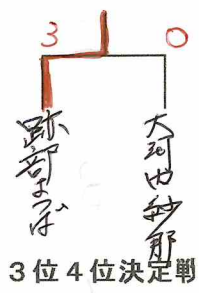 3 0
跡部よつば
大河内紗那
3位4位決定戦